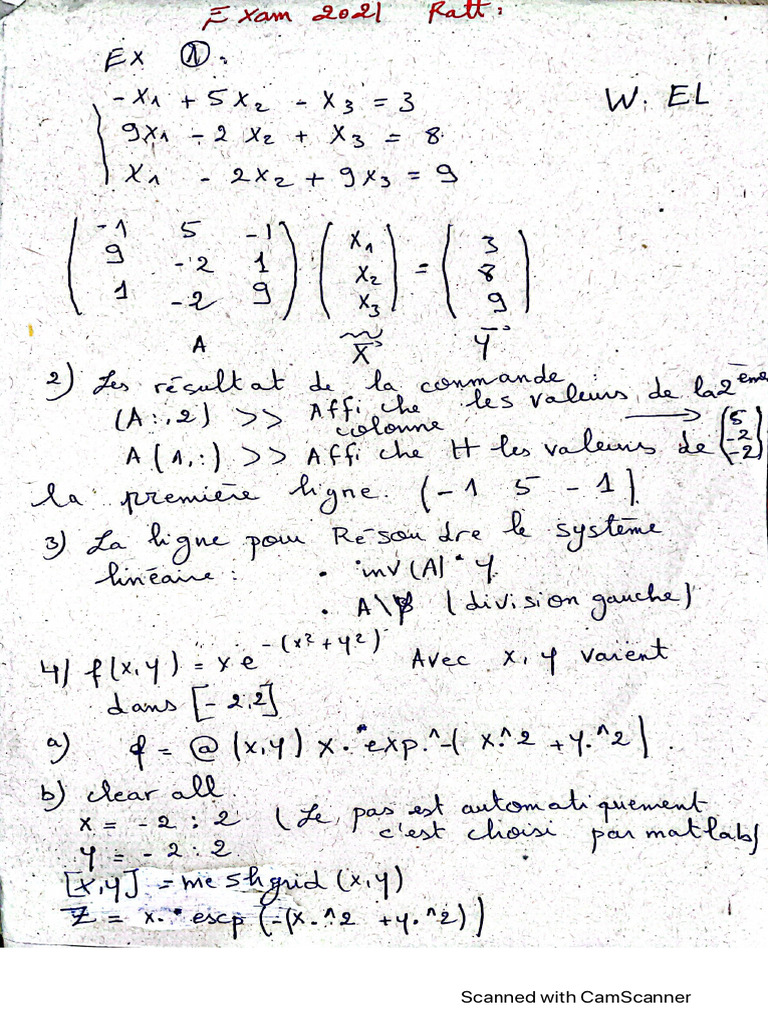 Exam 2021 Ratt:
Ex ①.
-x1 + 5x2 - x3 = 3
W. EL
9x1 - 2x2 + x3 = 8
x1 - 2x2 + 9x3 = 9
-1 5 -1
9 -2 1
1 -2 9
x1
x2
x3
=
3
8
9
A X Y
2) Les résultat de la commande
(A:,2) >> Affiche les valeurs de la 2ème
colonne → (5 -2 -2)
A(1,:) >> Affiche les valeurs de
la première ligne. (-1 5 -1).
3) La ligne pour Résoudre le système
linéaire : • inv(A) * Y
• A\ (division gauche)
4) f(x,y) = x e^-(x²+y²) Avec x, y vaient
dans [-2,2]
a) f = @ (x,y) x.*exp.^-( x.^2 + y.^2) .
b) clear all.
x = -2 : 2 (Le pas est automatiquement
c'est choisi par matlab)
y = -2 : 2
[x,y] = meshgrid (x,y)
Z = x.* escp (-(x.^2 + y.^2))
Scanned with CamScanner